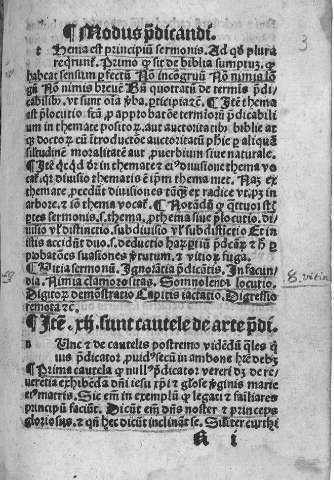 3
¶ Modus p̄dicandi.
Thema est principiū sermonis. Ad qḋ plura
reqrunt̄. Primo ꝙ sit de biblia sumptuȝ. ꝙ
habeat sensum ꝑfectū. No incōgruū No nimis lō
gū No nimis breuē Bn̄ quotatū de termīs p̄di
cabilib9. vt sunt oīa v̄ba, ꝑticipia ⁊c̄. ¶ Itē thema
est ꝓlocutū scd̄ꝫ
um in themate positoꝝ. aut auctoritatū biblie at
qꝫ doctoꝝ cū ītroductōe auctoritatū phie ꝑ aliquā
silitudinē moralitatē aut ꝓuerbium siue naturale.
¶ Itē qcqd dr̄ in themate diuisione thema vo
cat̄. qꝛ diuisio thematis ē ip̄m thema met. Naꝫ ex
themate ꝓcedūt diuisiones tāqȝ ex radice
arbore. ⁊ iō thema vocat̄. ¶ Notādū ꝙ q̄ttuor st̄
ꝑtes sermonis. s. thema, ꝓthema siue ꝓlocutio. di
uisio vl̓ distinctio. subdiuisio vl̓ subdistictio Et in
istis accidūt duo. s. deductio haꝝ ꝑtiū
probatōes suasiones v̄tutum. ⁊ vitioꝝ fuga.
¶ Vitia sermonū. Ignorātia p̄dicātis. In facun
dia. Nimia clamorositas. Somnolenta locutio.
Digitoꝝ demonstratio Capitis iactatio. Digressio
remota ⁊c̄.
8. vitia
¶ Itē. xij. sunt cautele de arte p̄di.
Nunc ⁊ de cautelis postremo vidēdū
uis p̄dicator, in ambone
¶ Prima cautela ꝙ nullꝰ p̄dicator vereri dꝫ de re
uerētia exhibēda dn̄i iesu xp̄i ⁊ gl̄ose v̄ginis marie
eiꝰ matris. Sic em̄ in exemplū ꝙ legati ⁊ familiares
principū faciūt. Dicūt em̄ dn̄s noster ⁊ princeps
gloriosꝰ. ⁊ qn̄ hec dicūt inclināt se. Silit̄
A i